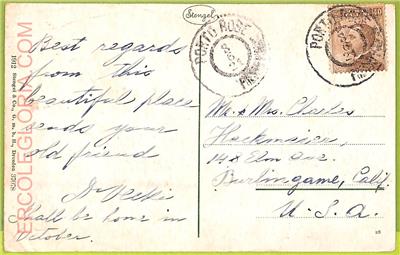 Stengel
PORTO ROSE
PORTO
Best regards
from this
beautiful place
sends your
old friend
Shall be home in
October.
Mr & Mrs. Charles
Hackmaier,
Elm Ave.
Burlingame, Calif.
U. S. A.
1912 Stengel & Co., G. m. b. H., Dresden
ERCOLEGLORIA.COM